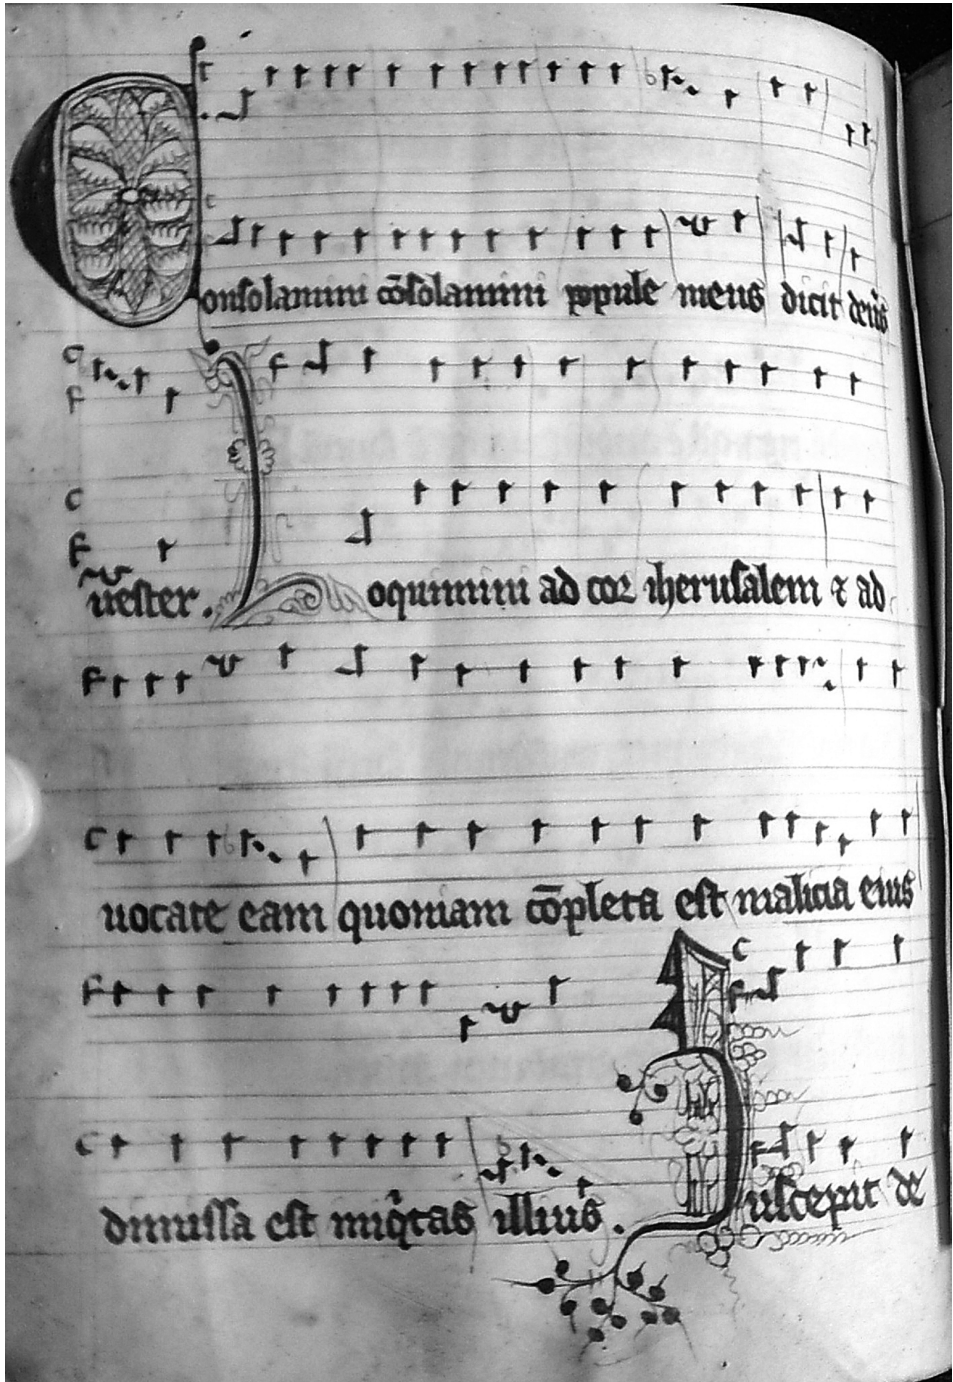 Consolamini cōsolamini popule meus dicit deus
uester. Loquimini ad cor iherusalem & ad
uocate eam quoniam cōpleta est malicia eius
dimissa est iniq̇tas illius. Suscepit de